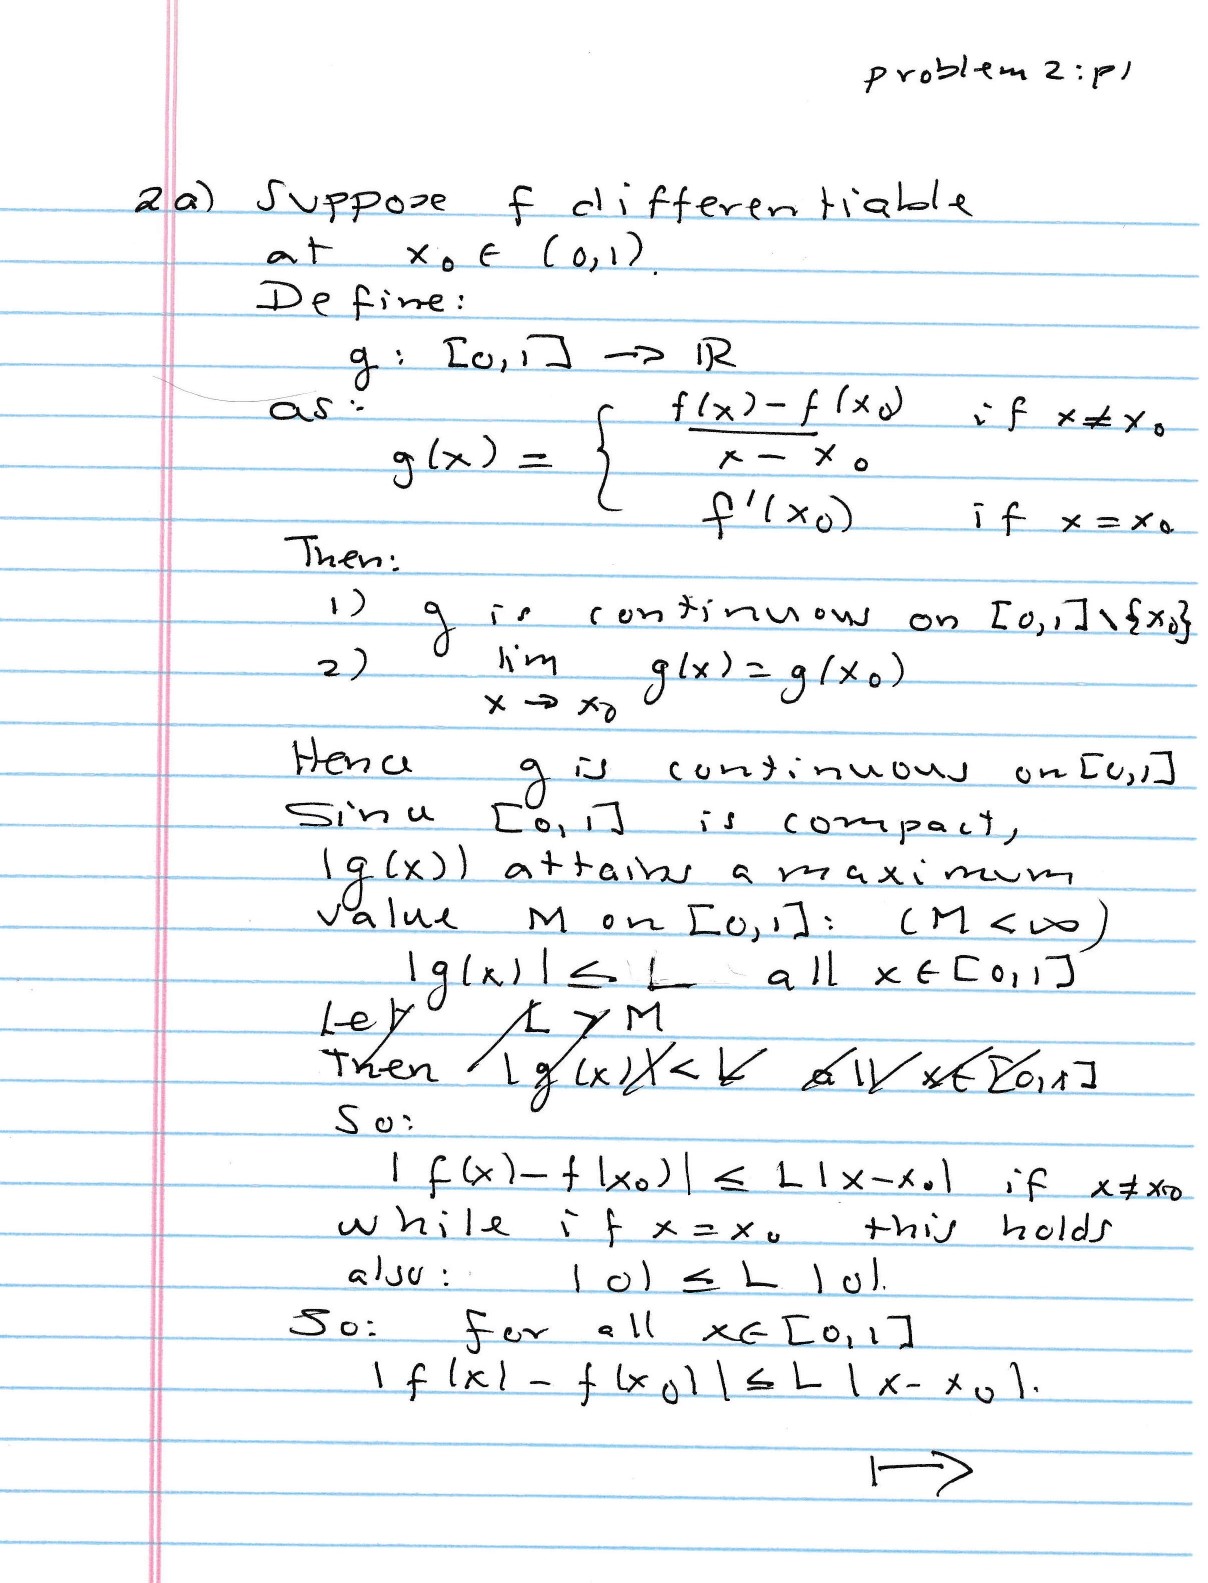 problem 2:p1
2a) Suppose f differentiable
at x₀ ∈ (0,1).
Define:
g : [0,1] → ℝ
as:
g(x) = { (f(x) - f(x₀))/(x - x₀) if x ≠ x₀
f'(x₀) if x = x₀
Then:
1) g is continuous on [0,1]\{x₀}
2) lim g(x) = g(x₀)
x → x₀
Hence g is continuous on [0,1]
Since [0,1] is compact,
|g(x)| attains a maximum
value M on [0,1]: (M < ∞)
|g(x)| ≤ L all x ∈ [0,1]
Let L > M
Then |g(x)| < L all x ∈ [0,1]
So:
|f(x) - f(x₀)| ≤ L|x - x₀| if x ≠ x₀
while if x = x₀ this holds
also: |0| ≤ L |0|.
So: for all x ∈ [0,1]
|f(x) - f(x₀)| ≤ L |x - x₀|.
↦